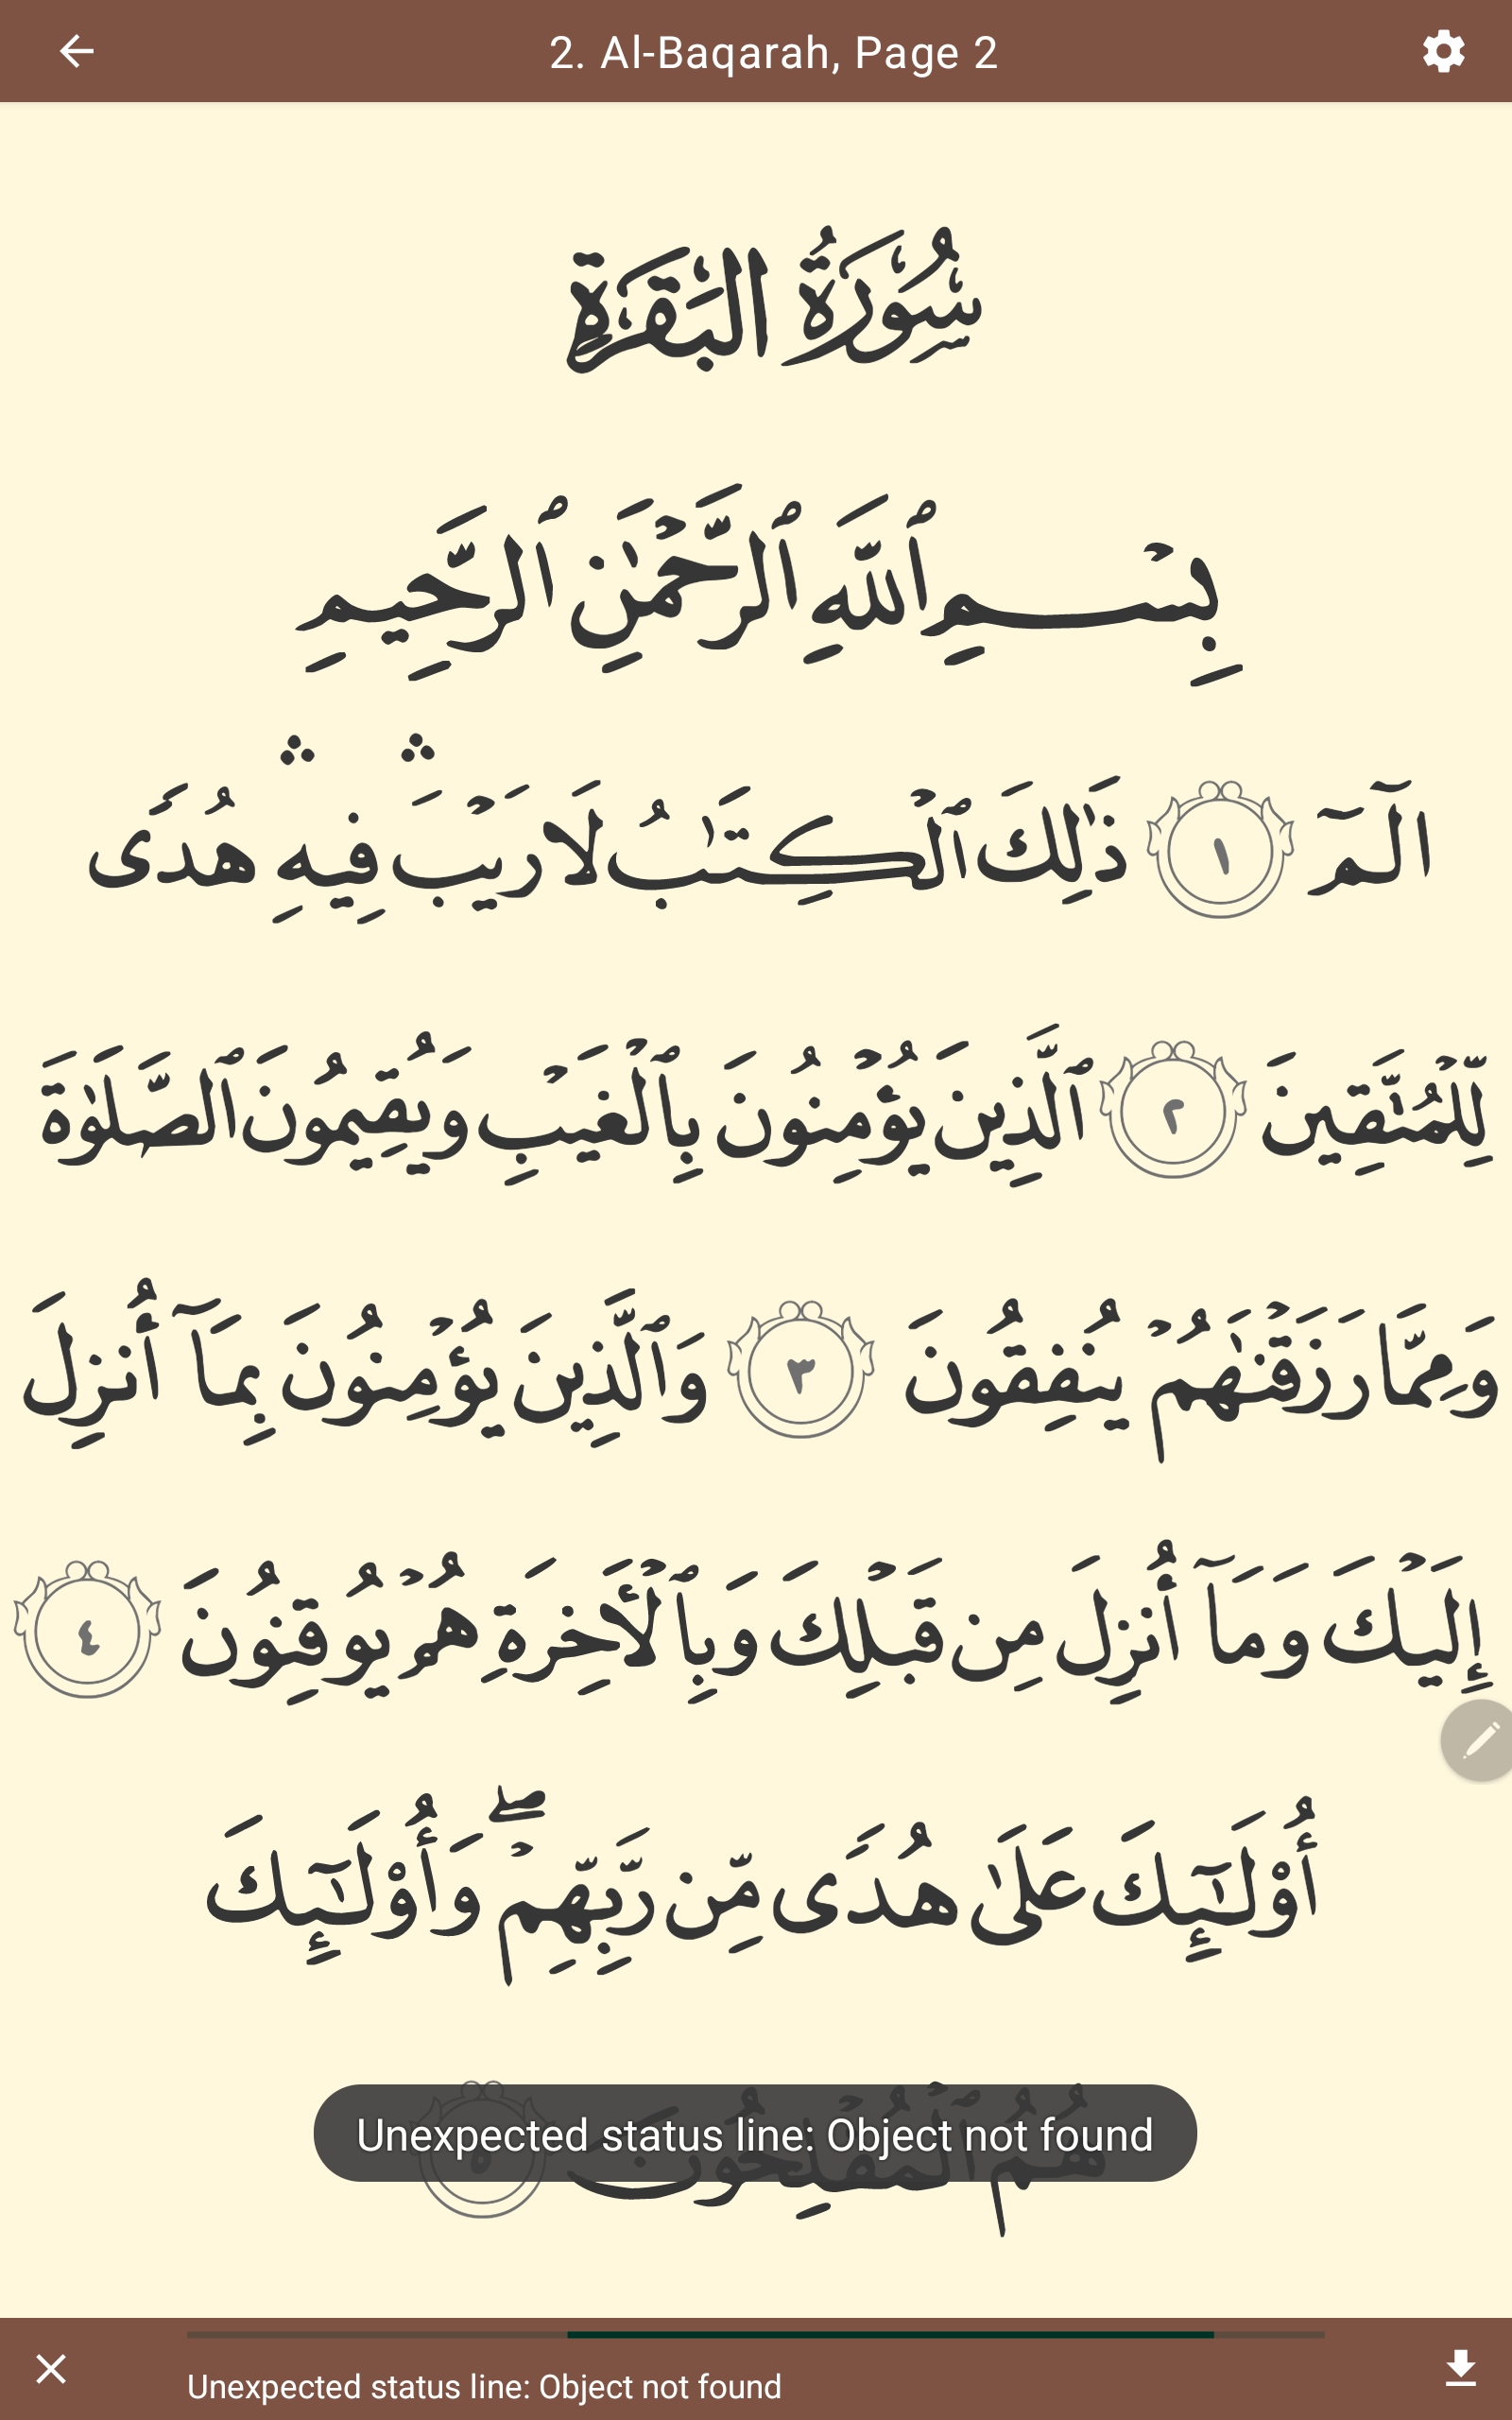 2. Al-Baqarah, Page 2
سُورَةُ البَقَرَةِ
بِسۡمِ ٱللَّهِ ٱلرَّحۡمَٰنِ ٱلرَّحِيمِ
الٓمٓ ١ ذَٰلِكَ ٱلۡكِتَٰبُ لَا رَيۡبَۛ فِيهِۛ هُدٗى
لِّلۡمُتَّقِينَ ٢ ٱلَّذِينَ يُؤۡمِنُونَ بِٱلۡغَيۡبِ وَيُقِيمُونَ ٱلصَّلَوٰةَ
وَمِمَّا رَزَقۡنَٰهُمۡ يُنفِقُونَ ٣ وَٱلَّذِينَ يُؤۡمِنُونَ بِمَآ أُنزِلَ
إِلَيۡكَ وَمَآ أُنزِلَ مِن قَبۡلِكَ وَبِٱلۡأٓخِرَةِ هُمۡ يُوقِنُونَ ٤
أُوْلَٰٓئِكَ عَلَىٰ هُدٗى مِّن رَّبِّهِمۡۖ وَأُوْلَٰٓئِكَ
هُمُ ٱلۡمُفۡلِحُونَ ٥
Unexpected status line: Object not found
Unexpected status line: Object not found